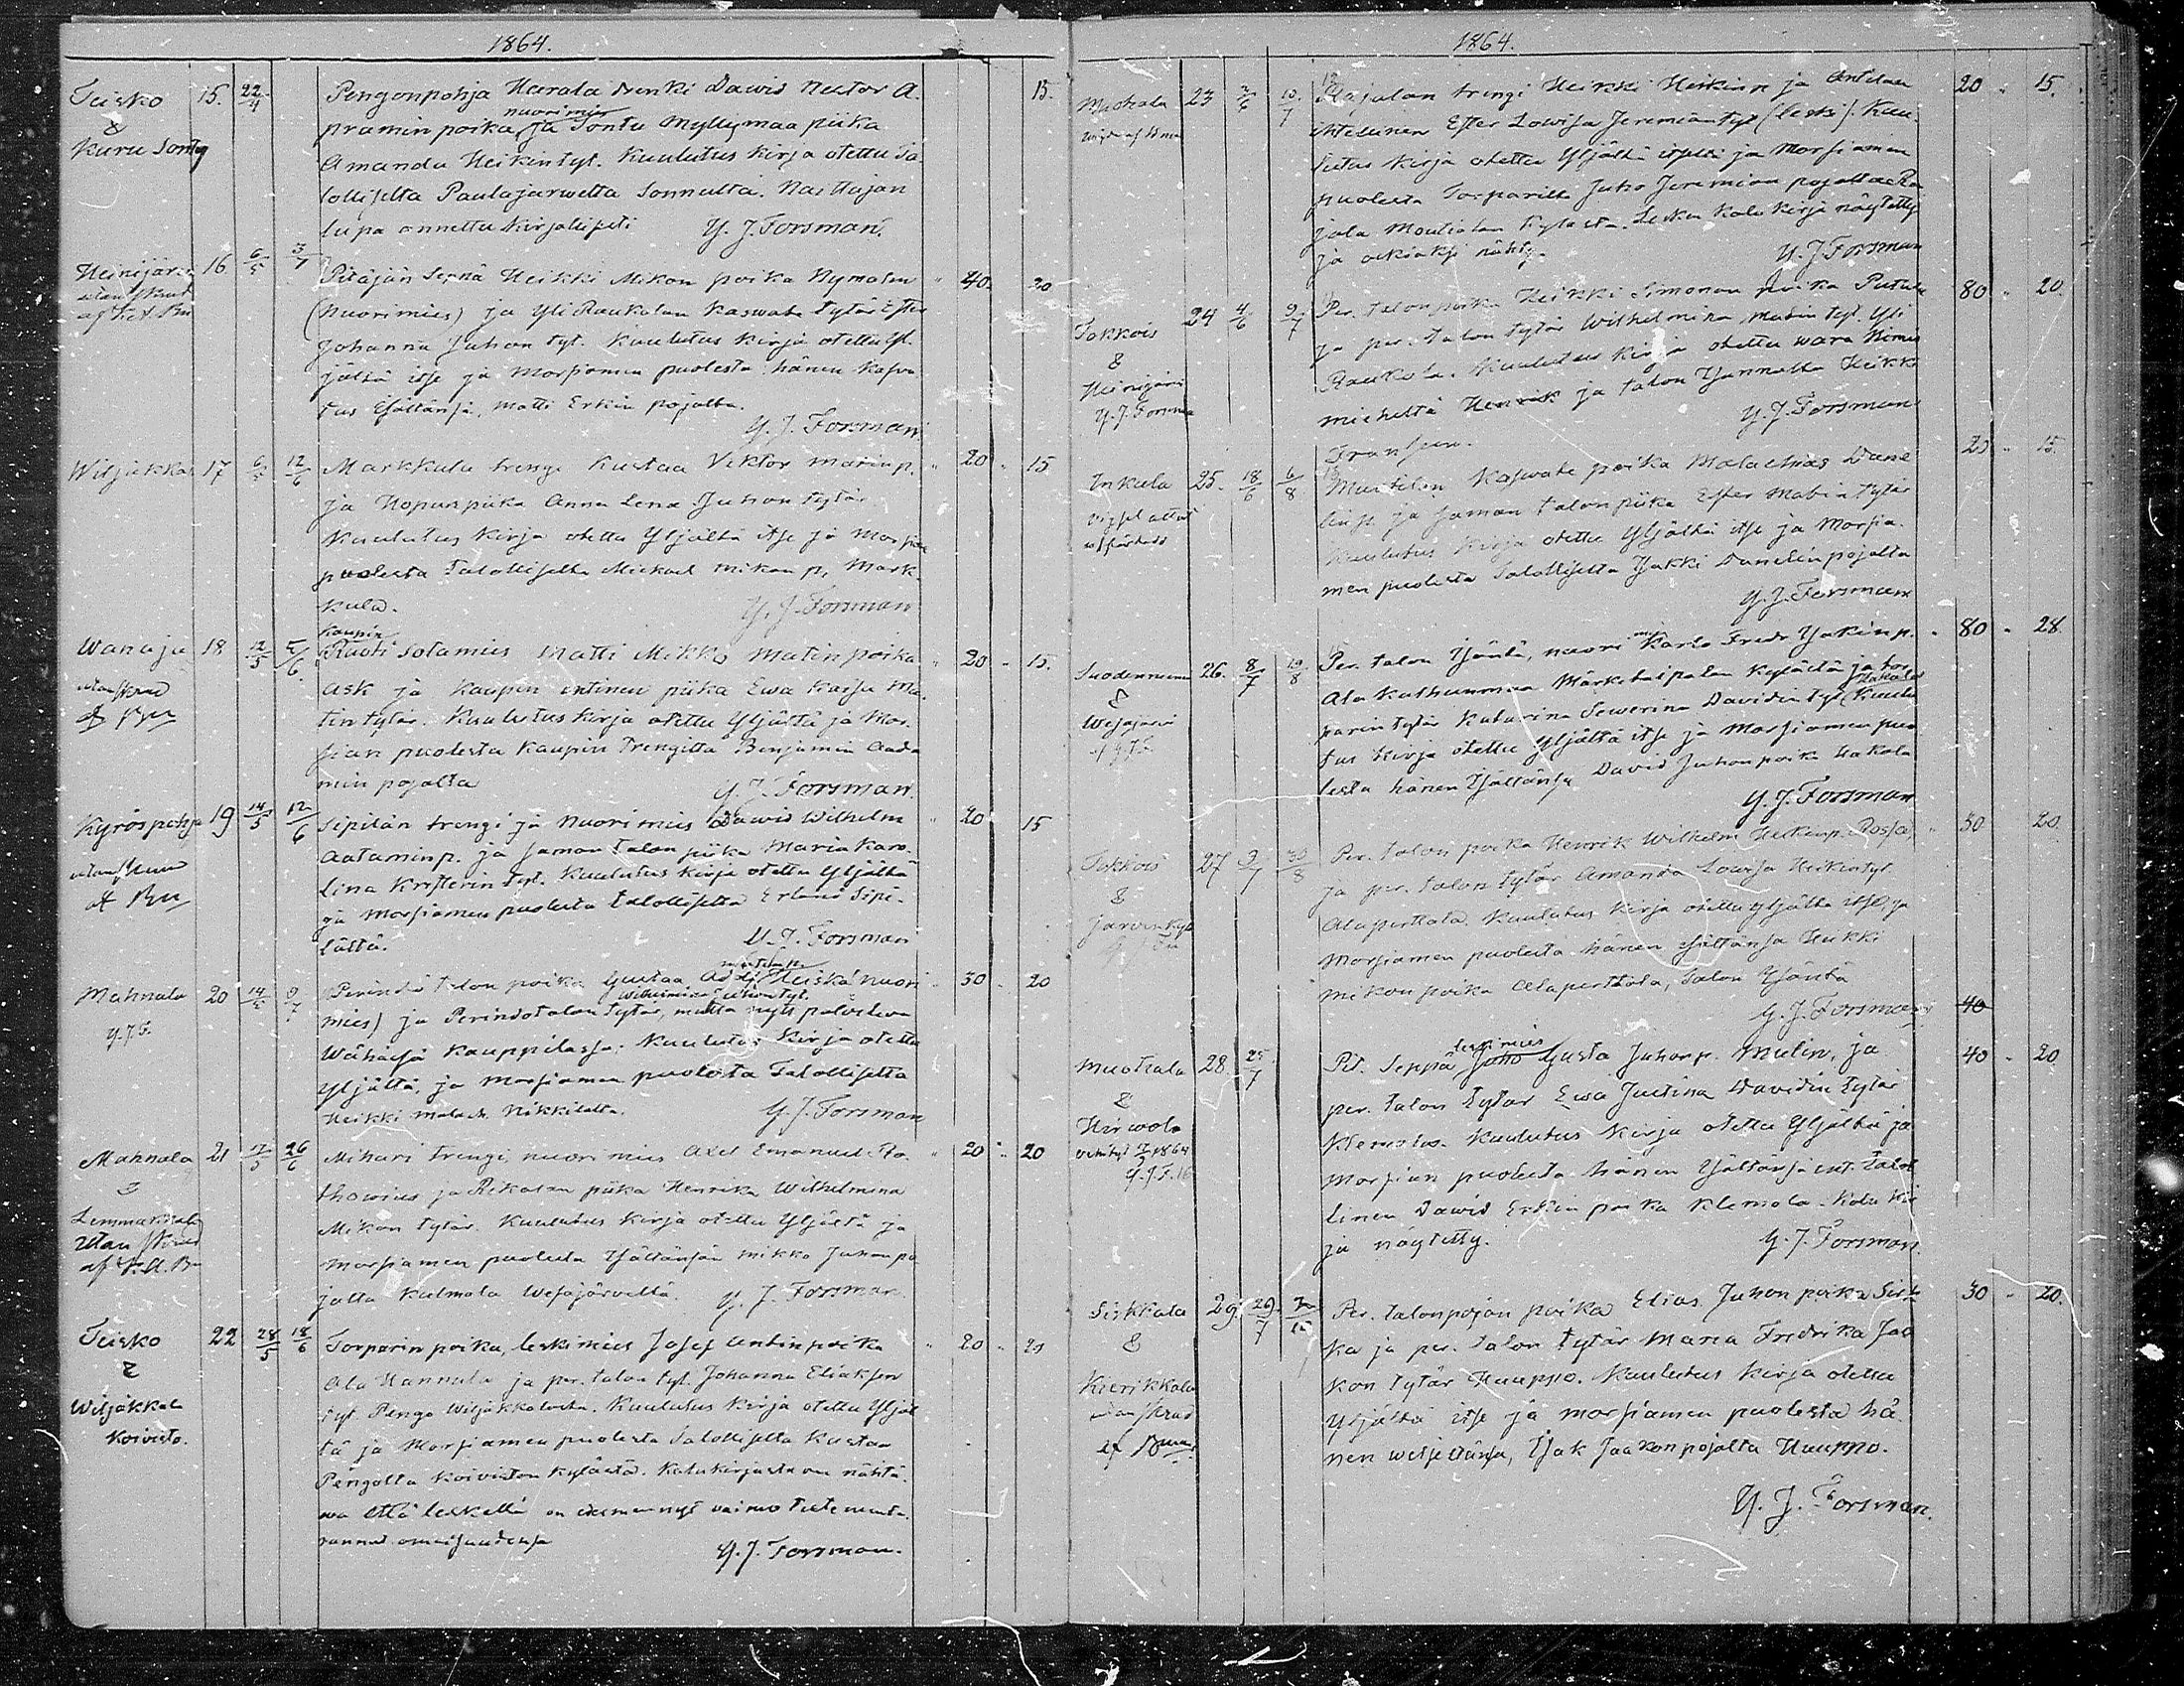 1864.
Teisko 15. 22/4 Pengonpohja Heerala drenki Dawid Nestor A. 15.
&
nuorimies
pramin poika, ja Sontu Myllymaa piika
Kuru Sontu
Amanda Heikintyt. Kuulutus kirja otettu Ta
lolliselta Paulajarwelta Sonnulta. Naittajan
lupa annettu kirjalisesti Y. J. Forsman.
Heinijärvi 16 6/5 3/7 Pitäjän Seppä Heikki Mikon poika Nyman " 40. 20
(Nuorimies) ja Yli Raukolan Kaswate tytär Ester
Johanna Juhon tyt. Kuulutus kirja otettu Yl-
jältä itse ja Morsiamen puolesta hänen Kaswa
tus Isältänsä, Matti Erkin pojalta.
Y. J. Forsman
Wiljakkala 17 6/5 12/6 Markkula trengi Kustaa Viktor Matinp. " 20 " 15
ja Hopun piika Anna Lena Juhon tytär
Kuulutus kirja otettu Yljältä itse ja Morsia
puolesta Talolliselta Mickael Mikon p. Mark
kula. Y. J. Forsman
Kaupin
Wanaja 18 12/5 5/6 Ruoti Sotamies Matti Mikko Matinpoika " 20 - 15.
Ask ja Kaupin entinen piika Ewa Kaisa Ma
tintytär. Kuulutus kirja otettu Yljältä ja Mor.
sian puolesta Kaupin Trengiltä Benjamin Aada
min pojalta Y. J. Forsman.
Kyröspohja 19 14/5 12/6 Sipilän trengi ja Nuori mies Dawid Wilhelm " 20 15
Aataminp. ja saman talon piika Maria Karo-
lina Kristerin tyt. Kuulutus kirja otettu Yljältä
ja Morsiamen puolesta talolliselta Erland Sipi-
lältä. Y. J. Forsman
Mahnala 20 14/5 9/7 Perindö talon poika Gustaa Adolf Heiskä nuori " 30 - 20
Wilhelmina Juhontyt.
Y. J. F.
mies) ja Perindotalon Tytär, mutta nyt palveleva
Wähässä Kauppilassa. Kuulutus Kirja otettu
Yljältä, ja Morsiamen puolesta Talolliselta
Heikki Malach. Nikkilalta. Y. J. Forsman
Mahnala 21 17/5 26/6 Mihari trengi, nuori mies Axel Emanuel Ro " 20 " 20
&
thowius ja Rekolan piika Henrika Wilhelmina
Lemmakkala
Mikon tytär. Kuulutus kirja otettu Yljältä ja
Morsiamen puolesta Isältänsän Mikko Juhon po
jalta Kulmala Wesajärveltä. Y. J. Forsman.
Teisko 22 28/5 18/6 Torparin poika, leskimies Josef Antinpoika " 20 " 20
&
Ala Hannula ja per. talon tyt. Johanna Eliaksen
Wiljakkala
tyt. Pengo Wiljakkalasta. Kuulutus kirja otettu Yljäl
Koivisto.
tä ja Morsiamen puolesta Talolliselta Kustaa
Pengolta Koiviston kylästä. Kalukirjasta on nähtä
wä että leskellä on edesmennyt vaimo testamenta
rannut omaisuudensa Y. J. Forsman.
1864.
23 2/6 10/7 Rajalan trengi Heikki Heikinp. ja Antilan 20 " 15.
ihtellinen Ester Lowisa Jeremiantyt (leski). Kuu
lutus kirja otettu Yljältä itseltä ja Morsiamen
puolesta Torparilta Juho Jeremian pojalta Ra
jala Moutialan kylästä. Lesken kalu kirja näytetty
ja oikiaksi nähty. Y. J. Forsman
Tokkois 24 4/6 9/7 Per. talonpoika Heikki Simonan poika Putula 80 " 20.
&
ja per. talon tytär Wilhelmina Matin tyt. Yli
Heinijärvi
Raukola. Kuulutus kirja otettu wara Nimis
Y. J. Forsman
mieheltä Henrik ja talon Isännältä Heikki
Fransen. Y. J. Forsman
Inkula 25. 18/6 6/8 Muntilan Kaswate poika Malachias Dane 20 " 15.
linp. ja saman talon piika Ester Matin tytär
Kuulutus Kirja otettu Yljältä itse ja Morsia.
men puolesta Talolliselta Jakki Danelin pojalta
Y. J. Forsman
Suodenniemi 26. 8/7 19/8 Per. talon Isäntä, nuori mies Karlo Fredr. Jakinp. " 80 " 28.
&
Ala Kathunmaa Märkelaipalan Kylästä ja tor
Wesajärvi
parin tytär Katarina Sewerina Davidin tyt. Kuulu
tus Kirja otettu Yljältä itse ja Morsiamen puo
lesta hänen Isältänsä David Juhon poika Hakala
Y. J. Forsman
Tokkois 27 9/7 30/8 Per. talon poika Henrik Wilhelm Heikinp. Rossa, " 50 20.
&
ja per. talon tytär Amanda Lowisa Heikintyt.
Alaperttala. Kuulutus kirja otettu Yljältä itse, ja
Morsiamen puolesta hänen isältänsä Heikki
Mikon poika Alaperttala, Talon Isäntä
Y. J. Forsman 40
leskimies
Muotiala 28. 25/7 Pit. Seppä Juho Gusta Juhonp. Mulin, ja 40 " 20.
&
per. talon tytär Ewa Justina Davidin tytär
Hirwola
Klemola. Kuulutus kirja otettu Yljältä ja
Morsian puolesta hänen Isältänsä ent. Talol
Y. J. F.
linen Dawid Erkin poika Klemola. Kalu kir
ja näytetty. Y. J. Forsman.
Sirkkala 29. 29/7 Per. talonpojan poika Elias Juhon poika Sirk 30 " 20.
&
ka ja per. talon tytär Maria Fredrika Jaa
Kierikkala
kon tytär Huuppo. Kuulutus kirja otettu
Yljältä itse ja morsiamen puolesta hä
nen weljeltänsä, Isak Jaakon pojalta Huuppo.
Y. J. Forsman.